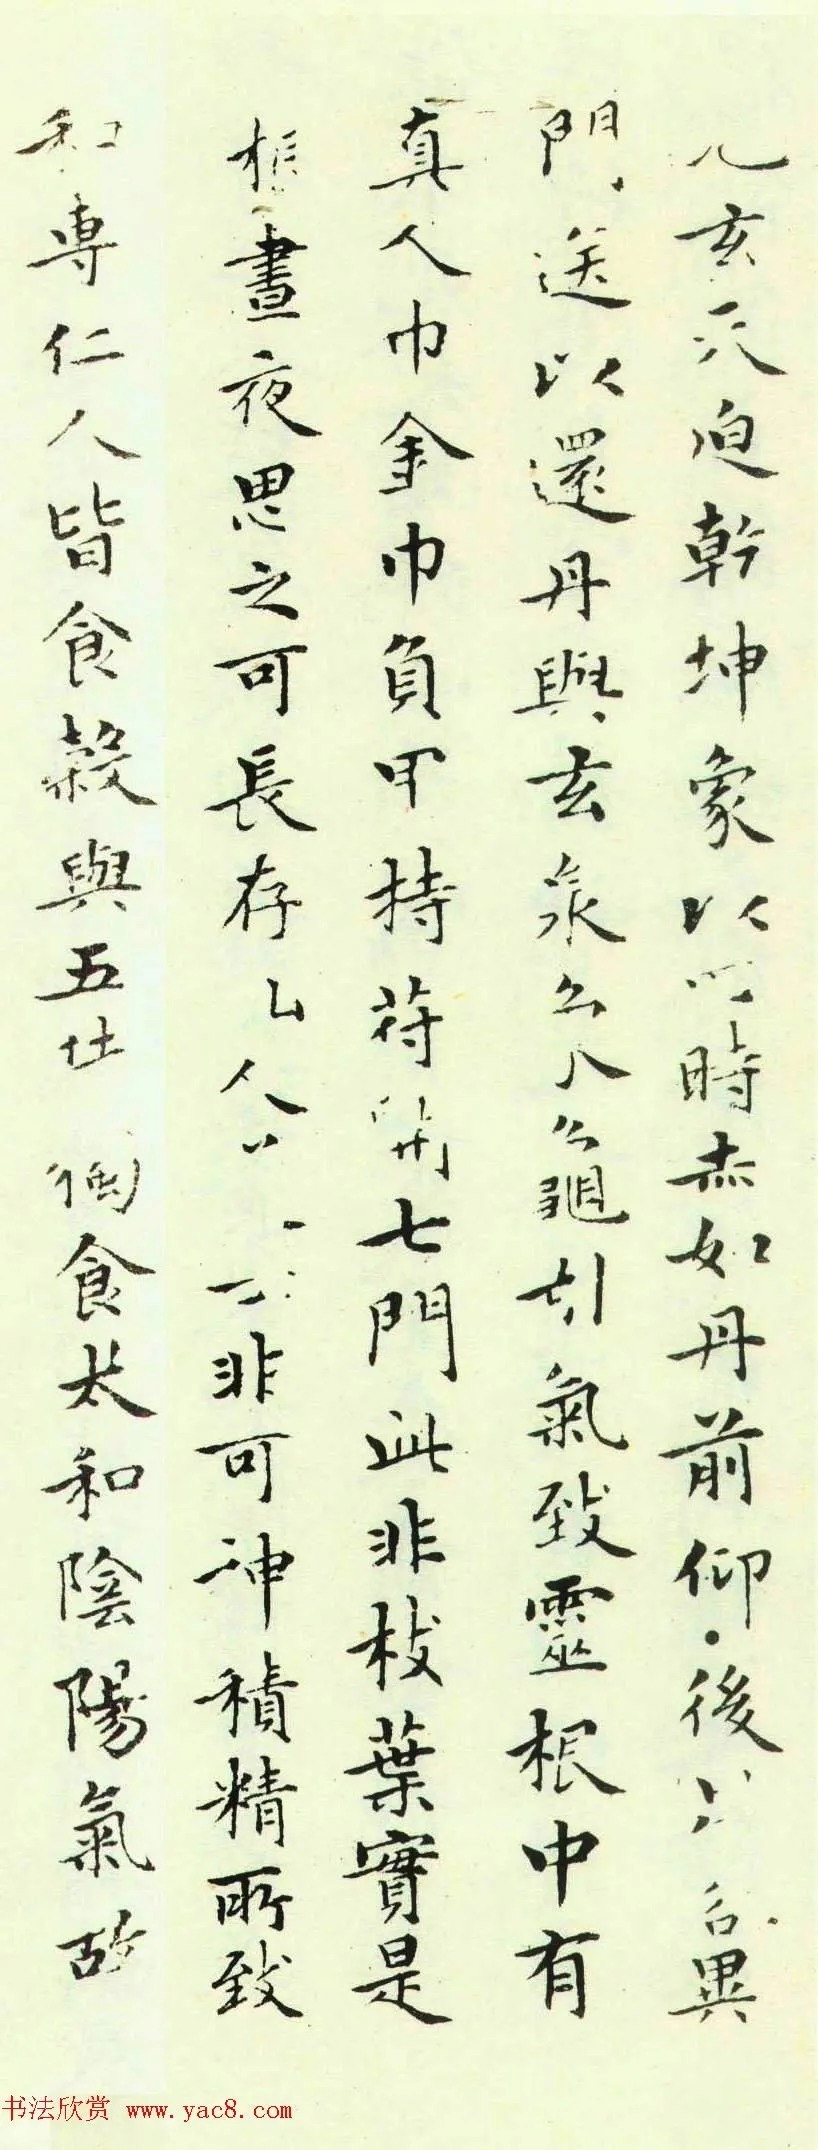 九玄天迫乾坤象以四時赤如丹前仰後異
門送以還丹與玄泉幺龜引氣致靈根中有
真人巾金巾負甲持符開七門此非枝葉實是
根晝夜思之可長存人非可神積精所致
和專仁人皆食穀與五獨食太和陰陽氣故
书法欣赏 www.yac8.com